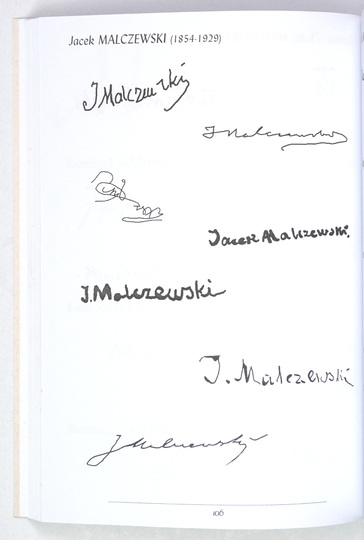 Jacek MALCZEWSKI (1854-1929)
J Malczewski
J Malczewski
Jacek Malczewski.
J. Malczewski
J. Malczewski
J Malczewski
106